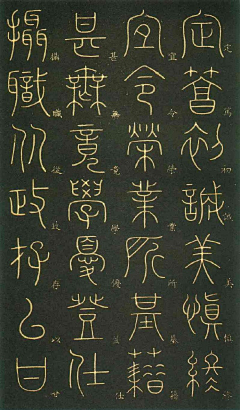 定篤初誠美慎終
宜令榮業所基籍
甚無竟學優登仕
攝職從政存以甘